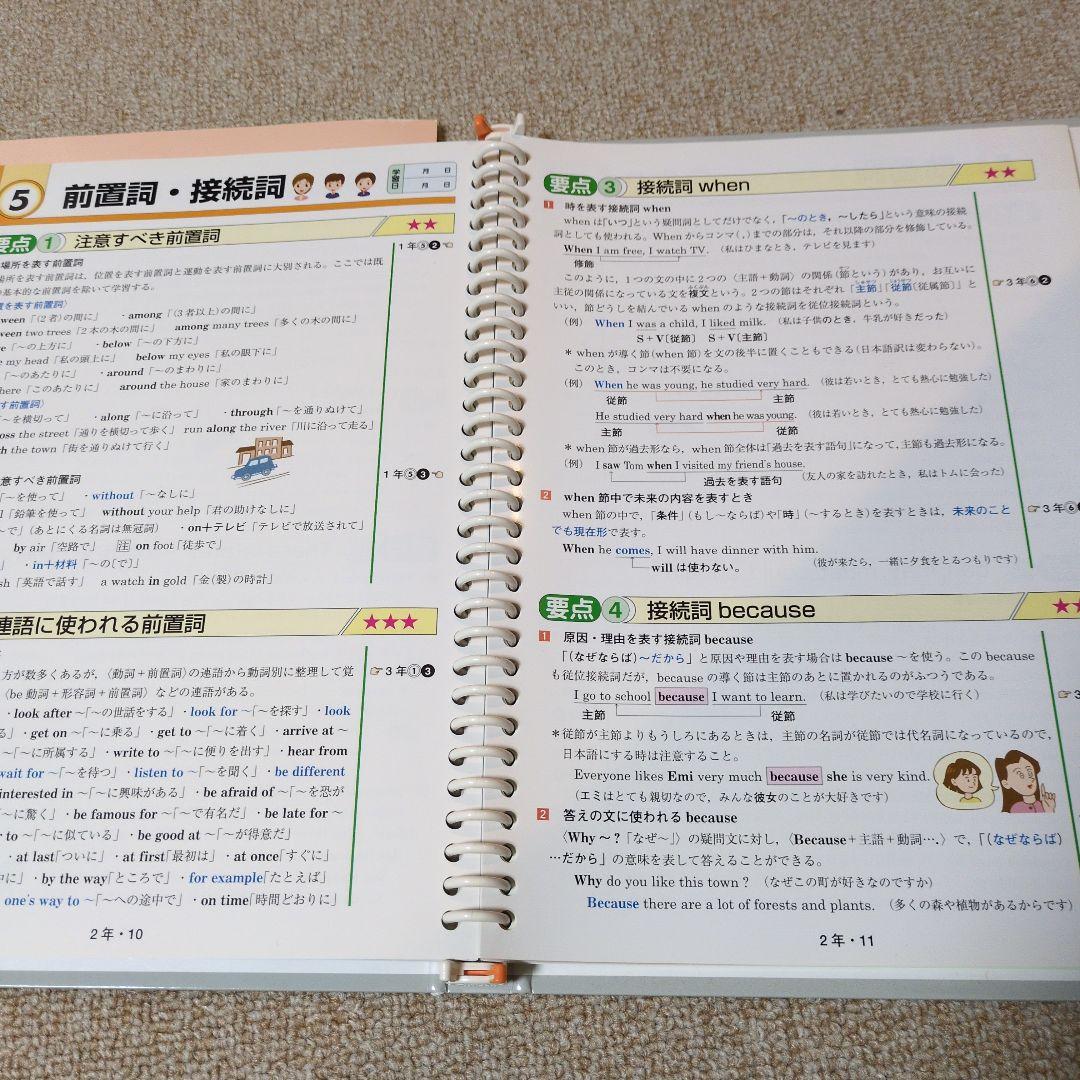 5 前置詞・接続詞
学習日 月 日
月 日
要点 1 注意すべき前置詞 ★★
場所を表す前置詞 1年⑤❷
場所を表す前置詞は、位置を表す前置詞と運動を表す前置詞に大別される。ここでは既
基本的な前置詞を除いて学習する。
を表す前置詞〉
ween「(2者)の間に」 ・among「(3者以上)の間に」
ween two trees「2本の木の間に」 among many trees「多くの木の間に」
「～の上方に」 ・below「～の下方に」
e my head「私の頭上に」 below my eyes「私の眼下に」
「～のあたりに」 ・around「～のまわりに」
here「このあたりに」 around the house「家のまわりに」
す前置詞〉
「～を横切って」 ・along「～に沿って」 ・through「～を通りぬけて」
oss the street「通りを横切って歩く」 run along the river「川に沿って走る」
the town「街を通りぬけて行く」
意すべき前置詞 1年⑤❸
「～を使って」 ・without「～なしに」
l「鉛筆を使って」 without your help「君の助けなしに」
～で」(あとにくる名詞は無冠詞) ・on＋テレビ「テレビで放送されて」
by air「空路で」 注 on foot「徒歩で」
・in＋材料「～の〔で〕」
sh「英語で話す」 a watch in gold「金(製)の時計」
連語に使われる前置詞 ★★★
方が数多くあるが、〈動詞＋前置詞〉の連語から動詞別に整理して覚 3年①❸
〈be動詞＋形容詞＋前置詞〉などの連語がある。
・look after ～「～の世話をする」 ・look for ～「～を探す」 ・look
る」 ・get on ～「～に乗る」 ・get to ～「～に着く」 ・arrive at ～
～「～に所属する」 ・write to ～「～に便りを出す」 ・hear from
wait for ～「～を待つ」 ・listen to ～「～を聞く」 ・be different
interested in ～「～に興味がある」 ・be afraid of ～「～を恐が
～に驚く」 ・be famous for ～「～で有名だ」 ・be late for ～
to ～「～に似ている」 ・be good at ～「～が得意だ」
・at last「ついに」 ・at first「最初は」 ・at once「すぐに」
中に」 ・by the way「ところで」 ・for example「たとえば」
one's way to ～「～への途中で」 ・on time「時間どおりに」
2年・10
要点 3 接続詞 when ★★
1 時を表す接続詞 when
whenは「いつ」という疑問詞としてだけでなく、「～のとき，～したら」という意味の接続
詞としても使われる。Whenからコンマ(，)までの部分は、それ以降の部分を修飾している。
When I am free, I watch TV. (私はひまなとき、テレビを見ます)
修飾
このように、1つの文の中に2つの〈主語＋動詞〉の関係(節という)があり、お互いに 3年⑥❷
主従の関係になっている文を複文という。2つの節はそれぞれ「主節」「従節〔従属節〕」と
いい、節どうしを結んでいるwhenのような接続詞を従位接続詞という。
(例) When I was a child, I liked milk. (私は子供のとき、牛乳が好きだった)
S＋V〔従節〕 S＋V〔主節〕
＊whenが導く節(when節)を文の後半に置くこともできる(日本語訳は変わらない)。
このとき、コンマは不要になる。
(例) When he was young, he studied very hard. (彼は若いとき、とても熱心に勉強した)
従節 主節
He studied very hard when he was young. (彼は若いとき、とても熱心に勉強した)
主節 従節
＊when節が過去形なら、when節全体は「過去を表す語句」になって、主節も過去形になる。
(例) I saw Tom when I visited my friend's house.
過去を表す語句 (友人の家を訪れたとき、私はトムに会った)
2 when 節中で未来の内容を表すとき
when節の中で、「条件」(もし～ならば)や「時」(～するとき)を表すときは、未来のこと 3年⑥
でも現在形で表す。
When he comes, I will have dinner with him.
will は使わない。 (彼が来たら、一緒に夕食をとるつもりです)
要点 4 接続詞 because ★★
1 原因・理由を表す接続詞 because
「(なぜならば)～だから」と原因や理由を表す場合はbecause～を使う。このbecause
も従位接続詞だが、becauseの導く節は主節のあとに置かれるのがふつうである。
I go to school because I want to learn. (私は学びたいので学校に行く) 3
主節 従節
＊従節が主節よりもうしろにあるときは、主節の名詞が従節では代名詞になっているので、
日本語にする時は注意すること。
Everyone likes Emi very much because she is very kind.
(エミはとても親切なので、みんな彼女のことが大好きです)
2 答えの文に使われる because
〈Why～？「なぜ～」〉の疑問文に対し、〈Because＋主語＋動詞…，〉で、「(なぜならば)
…だから」の意味を表して答えることができる。
Why do you like this town？ (なぜこの町が好きなのですか)
Because there are a lot of forests and plants. (多くの森や植物があるからです)
2年・11